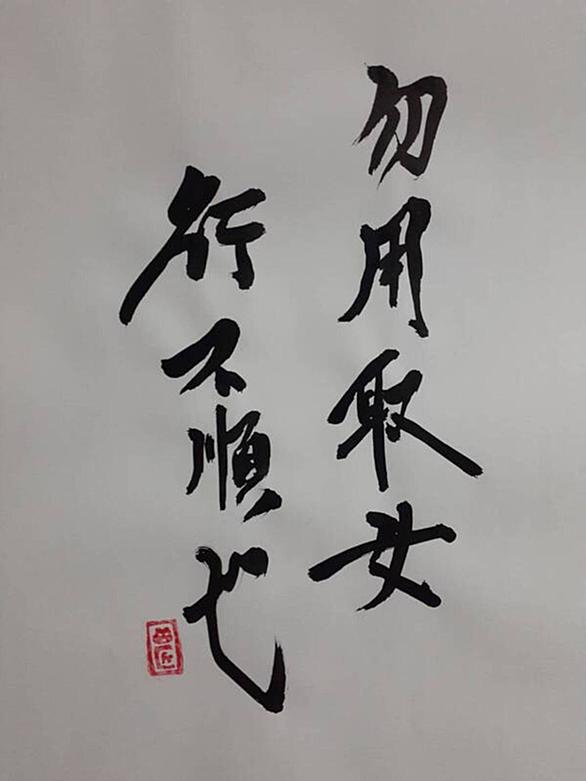 勿用取女
行不順也